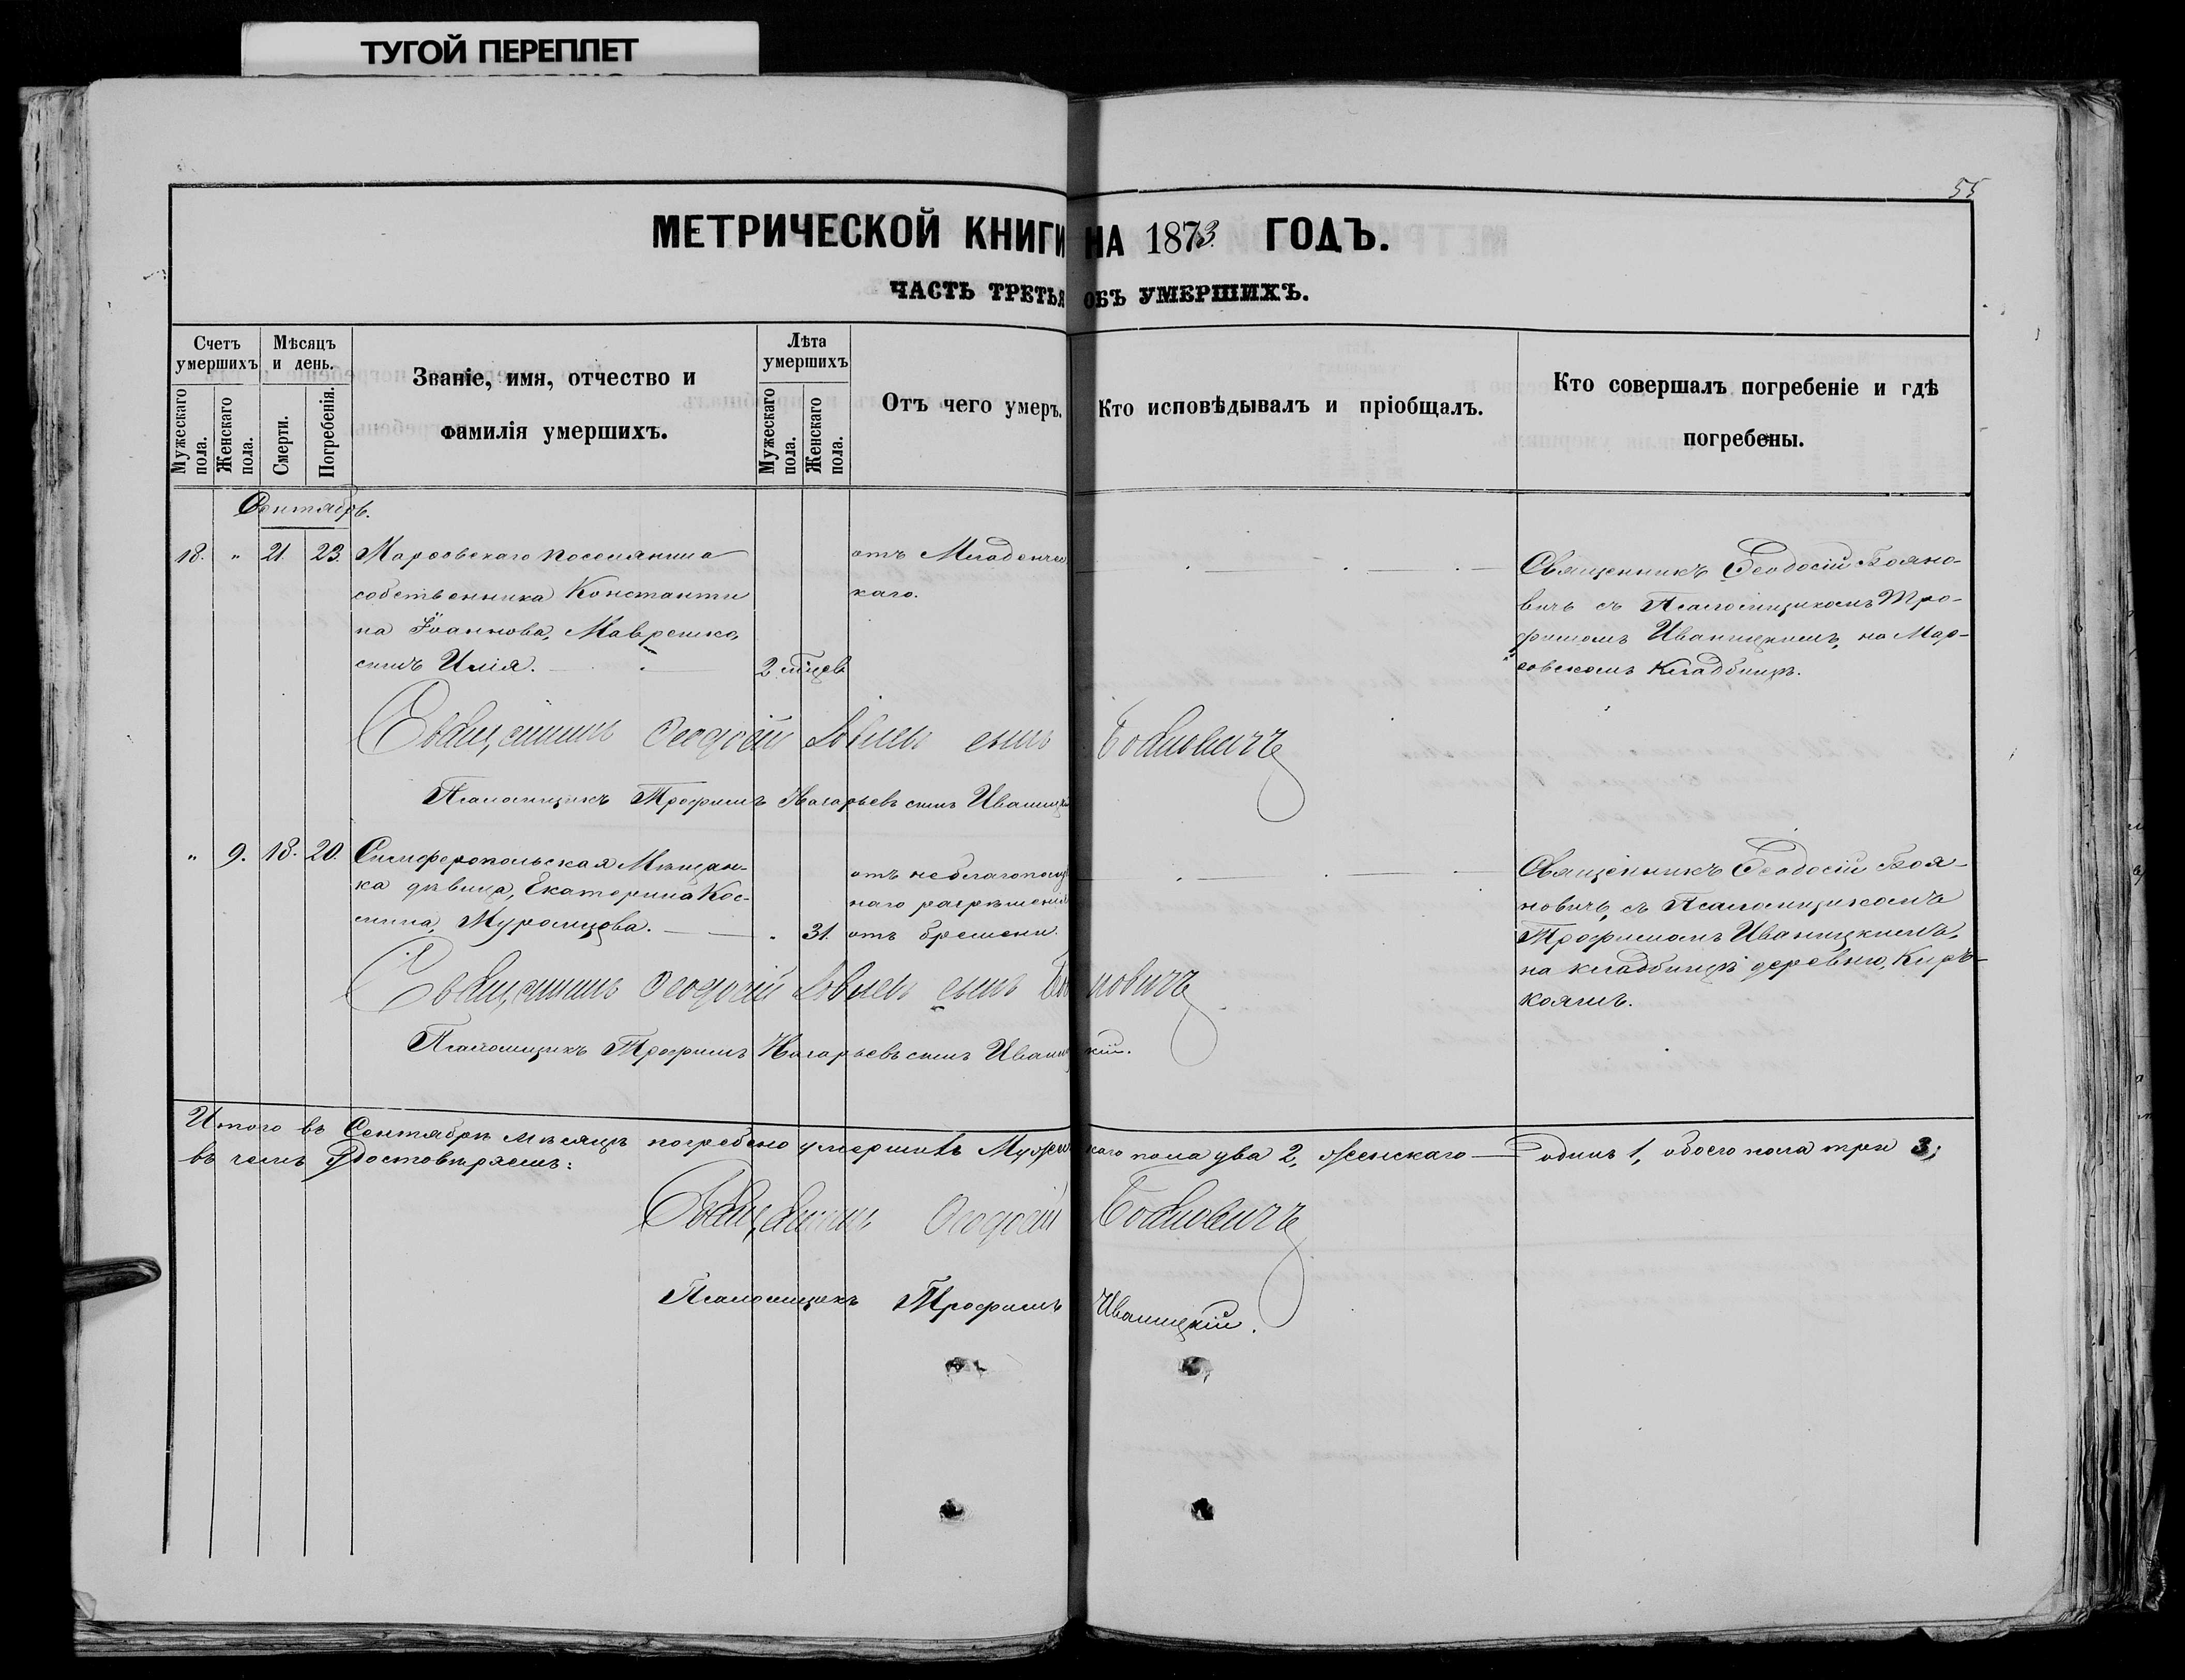 ТУГОЙ ПЕРЕПЛЕТ
55
МЕТРИЧЕСКОЙ КНИГИ НА 1873 ГОДЪ.
ЧАСТЬ ТРЕТЬЯ ОБЪ УМЕРШИХЪ.
Счетъ умершихъ
Мужескаго пола.
Женскаго пола.
Мѣсяцъ и день.
Смерти.
Погребенія.
Званіе, имя, отчество и
фамилія умершихъ.
Лѣта умершихъ
Мужескаго пола.
Женскаго пола.
Отъ чего умеръ.
Кто исповѣдывалъ и пріобщалъ.
Кто совершалъ погребеніе и гдѣ
погребены.
Сентябрь.
18. " 21. 23. поселянина
собственника Константи
на Іоаннова,
сынъ Илія. 2 мѣсев
отъ Младенчес
каго.
Священникъ Ѳеодосій Бояно-
вичъ съ Псаломщикомъ Тро-
фимомъ Иваницкимъ, на Мар-
совскомъ Кладбищѣ.
Священникъ Ѳеодосій сынъ Бояновичъ
Псаломщикъ Трофимъ Назарьевъ сынъ Иваницкій
" 9. 18. 20. Симферопольская Мѣщан-
ка дѣвица, Екатерина Кос-
мина, Муромцова. " 31.
отъ неблагополуч
наго разрѣшенія
отъ бремени.
Священникъ Ѳеодосій Боя-
новичъ, съ Псаломщикомъ
Трофимомъ Иваницкимъ,
на кладбищѣ деревню, Киръ-
кояшъ.
Священникъ Ѳеодосій сынъ Бояновичъ
Псаломщикъ Трофимъ Назарьевъ сынъ Иваницкій.
Итого въ Сентябрѣ мѣсяцѣ погребено умершихъ Мужескаго пола два 2, Женскаго — одинъ 1, обоего пола три 3;
въ чемъ удостовѣряемъ:
Священникъ Ѳеодосій Бояновичъ
Псаломщикъ Трофимъ Иваницкій.